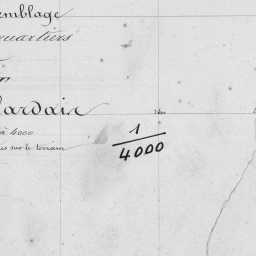 emblage
quartiers
lardair
à 4000
es sur le terrain
1
4000